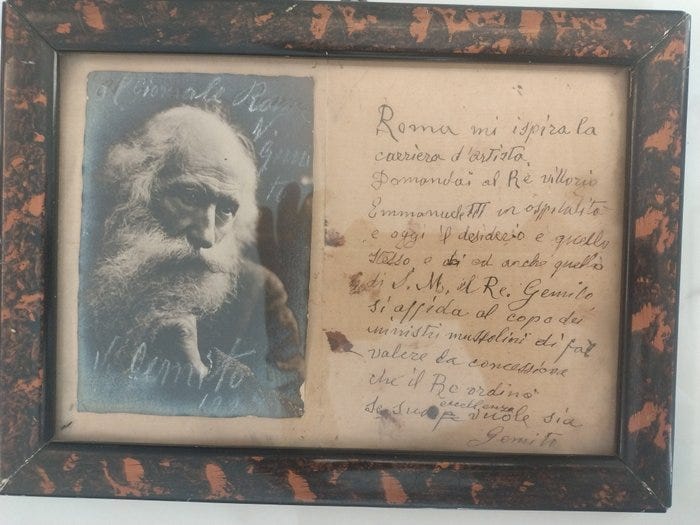 Al Giornale Roma
V.
Gemi
to
V. Gemito
Roma mi ispira la
carriera d'artista.
Domandai al Rè vittorio
Emmanuele III un ospitalità
e oggi il desiderio e quello
stesso e di ed anche quello
di S. M. il Re. Gemito
si affida al capo dei
ministri mussolini di far
valere la concessione
che il Re ordinò
se sua eccellenza vuole sia
Gemito